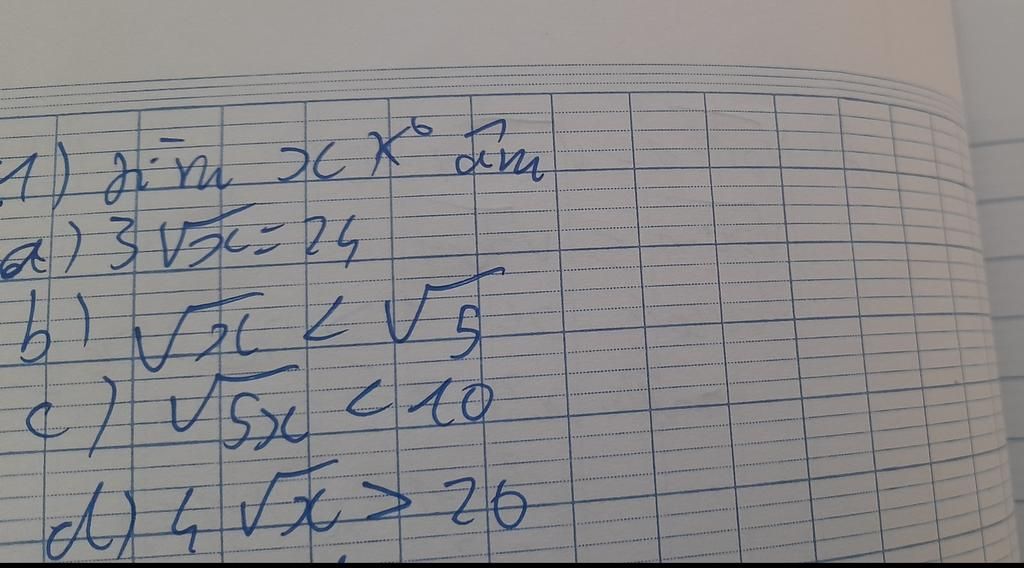 1) Tìm x k⁰ âm
a) 3√x = 24
b) √x < √5
c) √5x < 10
d) 4√x > 20